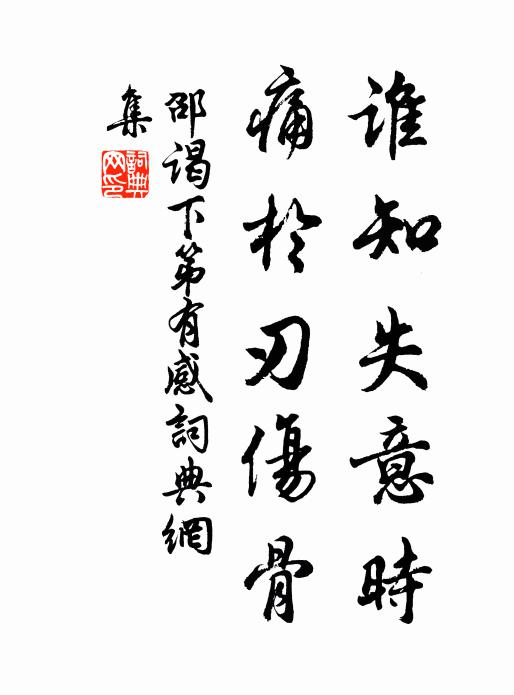 誰知失意時
痛於刃傷骨
邵謁下第有感詞典網
集
詞典
网印